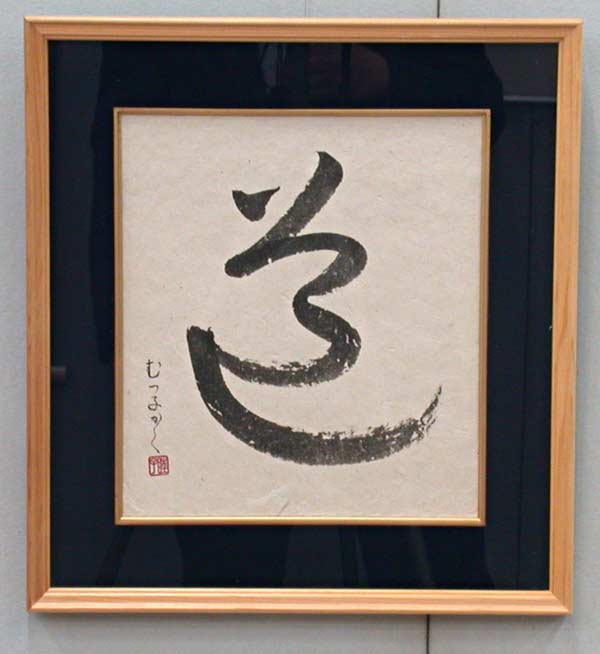 道
むつ子かく